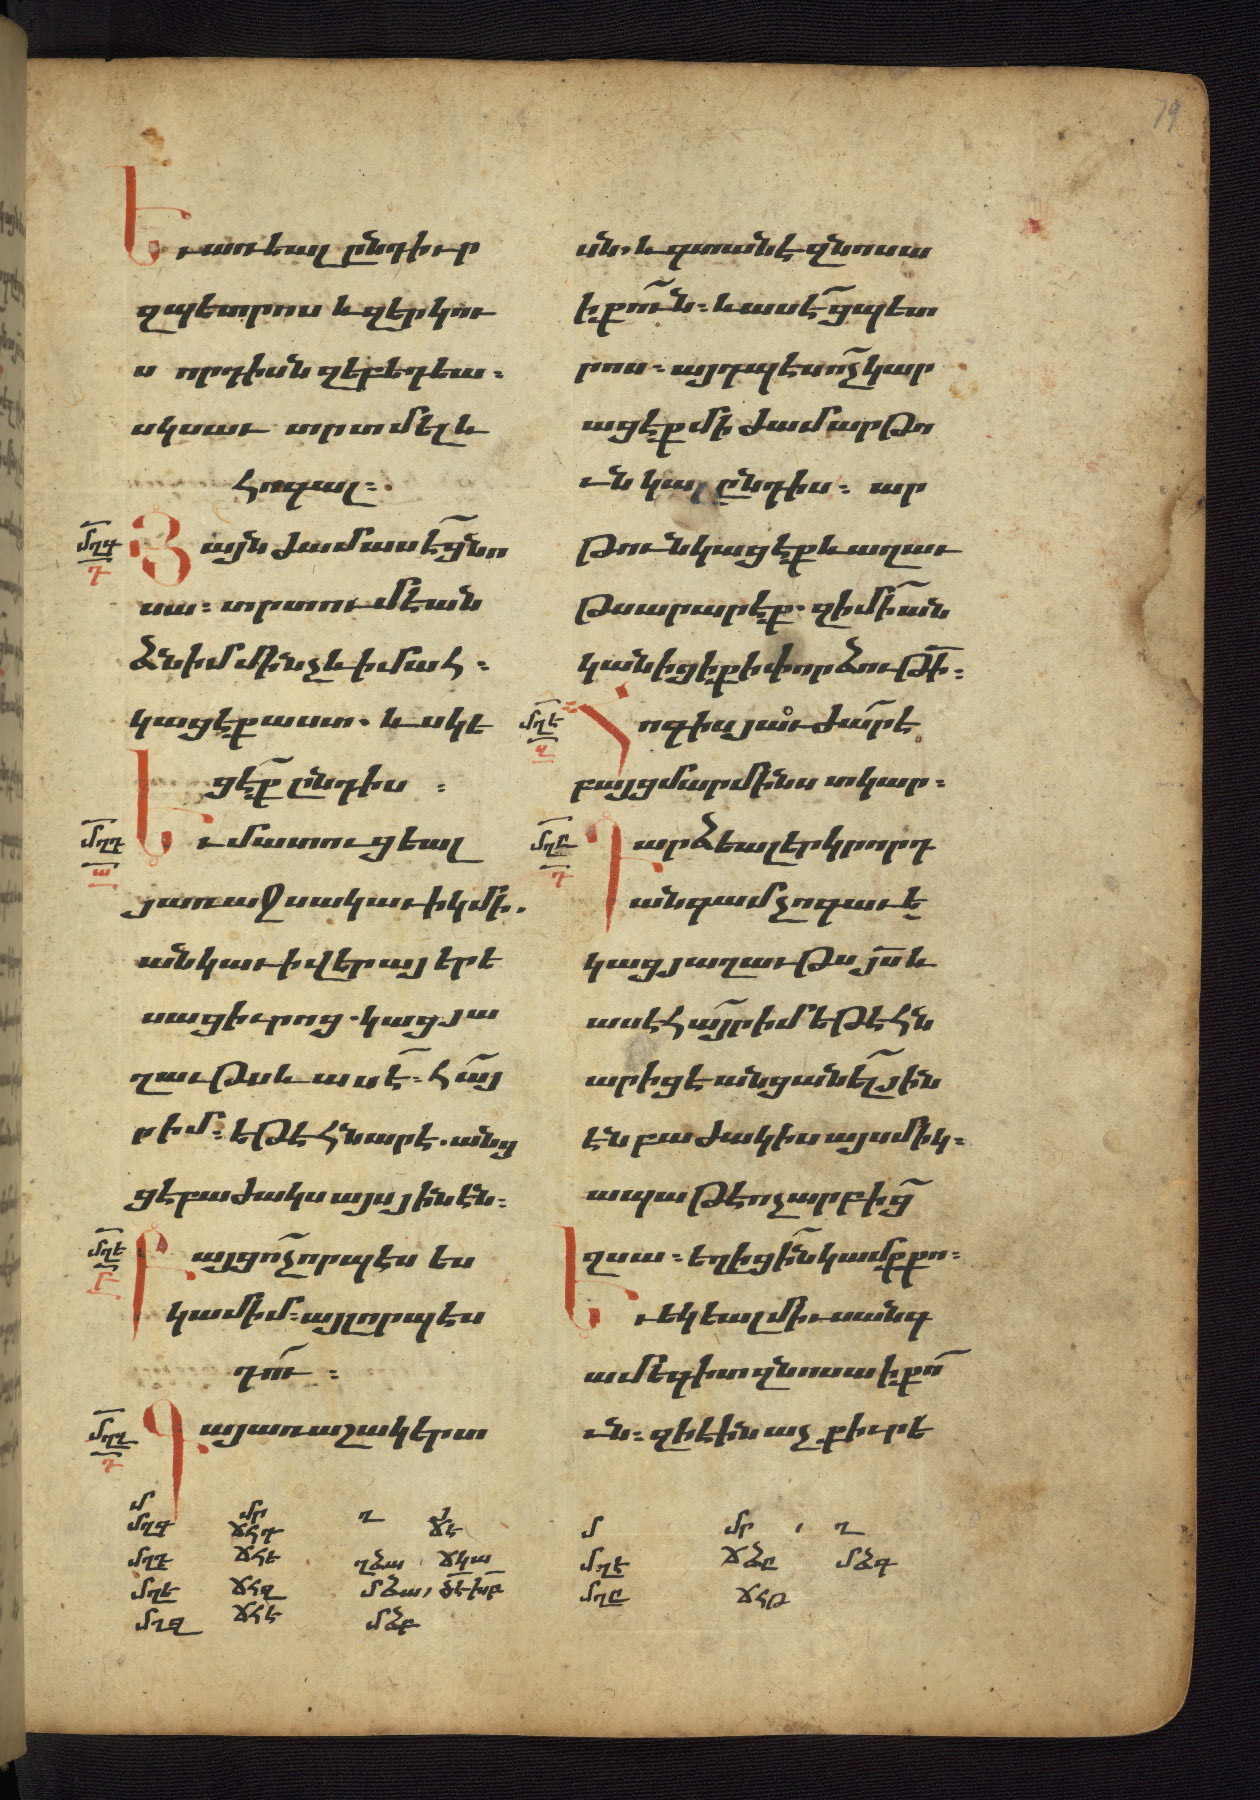 79
Եւ առեալ ընդ իւր
զպետրոս և զերկու
ս որդիսն զեբեդեա ։
սկսաւ տրտմել և
հոգալ ։
մղգ
դ
Յայն ժամ ասէ ցնո
սա ։ տրտում է ան
ձն իմ մինչև ի մահ ։
կացէք աստ . և սկե
ցէք ընդ իս ։
մղդ
ա
Եւ մատուցեալ
յառաջ սակաւիկ մի .
անկաւ ի վերայ երե
սաց իւրոց . կաց յա
ղաւթս և ասէ ։ հայ
ր իմ ։ եթե հնար է . անց
ցէ բաժակս այս յինէն ։
մղե
բ
Բայց ոչ որպէս ես
կամիմ ։ այլ որպէս
դու ։
մղզ
դ
Գայ առ աշակերտ
սն . և գտանէ զնոսա
ի քուն ։ և ասէ ցպետ
րոս ։ այդպէս ոչ կար
ացէք մի ժամ արթո
ւն կալ ընդ իս ։ ար
թուն կացէք և աղաւ
թս արարէք . զի մի ան
կանիցիք ի փորձութի ։
մղէ
զ
Հոգիս յաւժար է
բայց մարմինս տկար ։
մղը
դ
Դարձեալ երկրորդ
անգամ չոգաւ ե
կաց յաղաւթս յս և
ասէ հայր իմ եթէ հն
ար իցէ անցանել յին
էն բաժակիս այսմիկ ։
ապա թէ ոչ արբից
զսա ։ եղիցին կամք քո ։
Եւ եկեալ միւսանգ
ամ եգիտ զնոսա ի քո
ւն ։ զի էին աչք իւրե
մ մր ղ յ
մղգ ճհդ ճե
մղդ ճհե ղձա ճկա
մղե ճհզ մձա
մղզ ճհէ մձբ
մ մր ղ
մղէ ճձը մձգ
մղը ճհթ